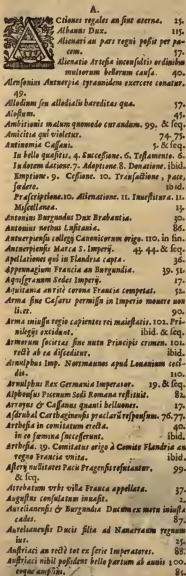 A.
Actiones regales an sint aterna. 25.
Albanus Dux. 115.
Alienari an pars regni poßit per pacem. 57.
Alienatio Artesiæ inconsultis ordinibus multorum bellorum causa. 40.
Alensonius Antuerpia tyrannidem exercere conatur. 49.
Allodium seu allodialis hareditas qua. 57.
Alostum. 45.
Ambitionis malum quomodo curandum. 99. & seq.
Amicitia qui violetur. 74.75.
Antinomia Caßani. 5. & seq.
In bello quæsitis. 4. Succeßione. 6. Testamento. 6.
In dotem datione. 7. Adoptione. 8. Donatione. ibid.
Emptione. 9. Ceßione. 10. Transactione, pace,
fœdere. ibid.
Præscriptione. 10. Alienatione. 11. Inuestitura. 11.
Miscellanea. 13.
Antonius Burgundus Dux Brabantia. 30.
Antonius nothus Lusitania. 86.
Antuerpiensis collegij Canonicorum origo. 110. in fin.
Antuerpiensis Marca S. Imperij. 43. 44. & seq.
Appellationes qui in Flandria capta. 36.
Appennagium Francia an Burgundia. 39. 51.
Aquisgranum Sedes Imperij. 17.
Aquitania an ritè corona Francia competat. 52.
Arma sine Casaris permissu in Imperio mouere non
licet. 90.
Arma iniussu regio capientes rei maiestatis. 102. Priuilegijs
excidunt. ibid. & seq.
Armorum societas sine nutu Principis crimen. 101.
rectè ab ea disceditur. ibid.
Arnulphus Imp. Nortmannos apud Louanium cecidit. 110.
Arnulphus Rex Germania Imperator. 19. & seq.
Alphonsus Picenum Sedi Romana restituit. 82.
Arrogus & Caßanus quam belluones. 17.
Asdrubal Carthaginensis præclarũ responsum. 76.77.
Arthesia in comitatum erecta. 40.
in eo fœmina succeßerunt. ibid.
Arthesia. 39. Comitatus origo à Comite Flandria an
regno Francia vnita. ibid.
Asserij nullitates Pacis Pragensis refutantur. 99.
& seq.
Atrebatum vrbs villa Franca appellata. 37.
Augustus consulatum inuasit. 3.
Aurelianensis & Burgundia Ducum ex motu iniusta
cades. 87.
Aurelianensis Ducis filia ad Nauarraum regnum
ius. 25.
Austriaci an rectè tot ex serie Imperatores. 88.
Austriaci nihil poßident bello partum ab annis 100.
eoque amplius. 85.